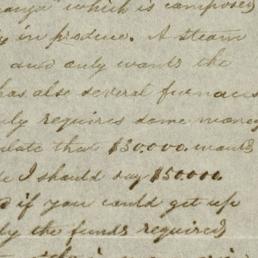 which is composed
in produce. A steam
and only wants the
has also several furnaces
requires some money
that $30.000. wants
I should say $50000
if you could get up
the funds required